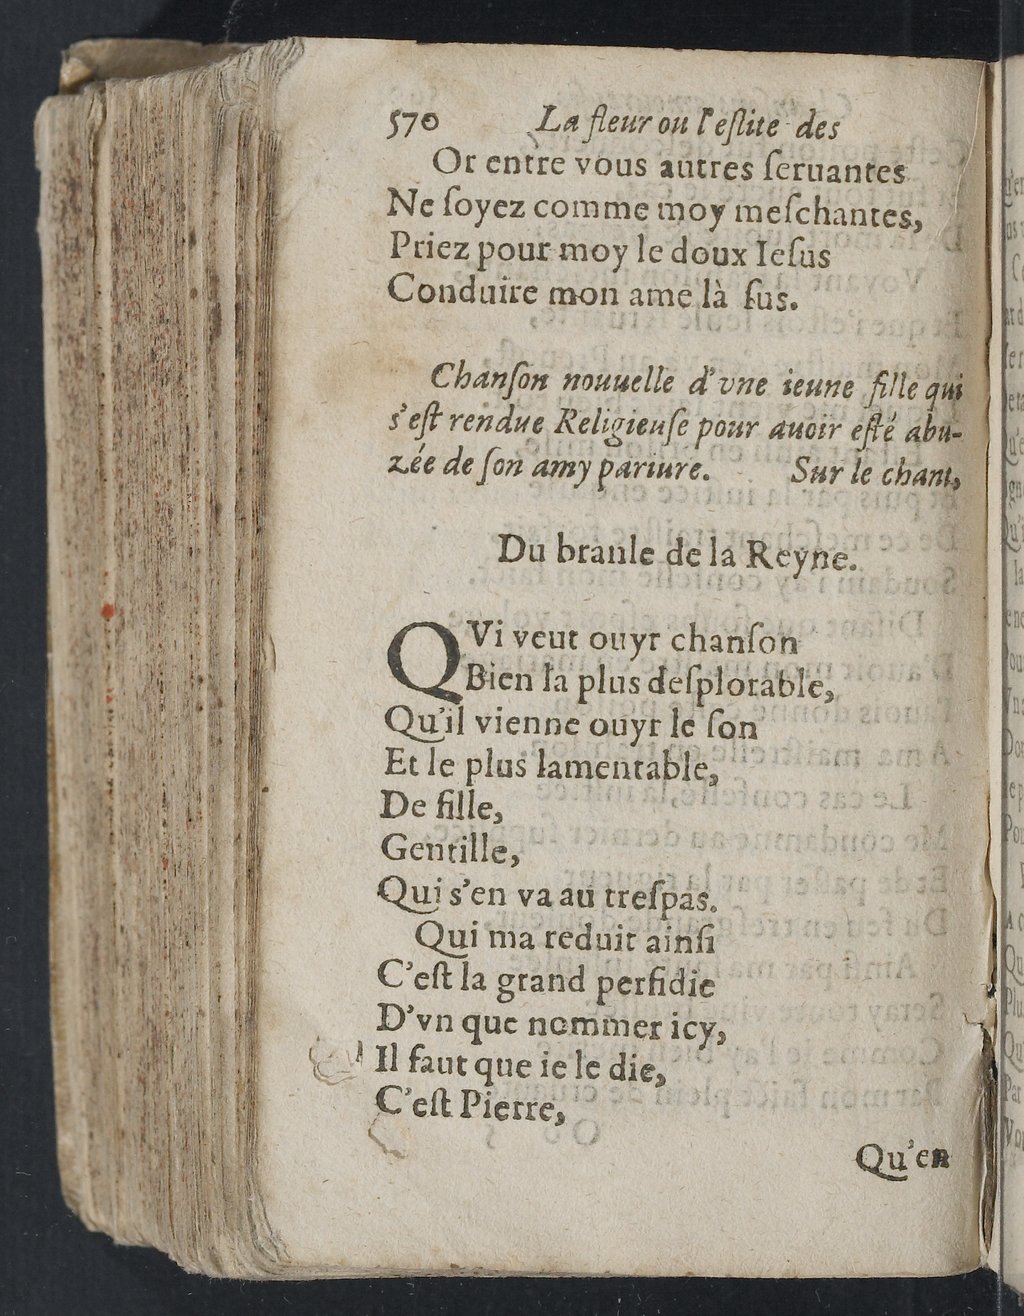 570 La fleur ou l'eſlite des
Or entre vous autres ſeruantes
Ne ſoyez comme moy meſchantes,
Priez pour moy le doux Ieſus
Conduire mon ame là ſus.
Chanſon nouuelle d'vne ieune fille qui
s'eſt rendue Religieuſe pour auoir eſté abu-
zée de ſon amy pariure. Sur le chant,
Du branle de la Reyne.
QVi veut ouyr chanſon
Bien la plus deſplorable,
Qu'il vienne ouyr le ſon
Et le plus lamentable,
De fille,
Gentille,
Qui s'en va au treſpas.
Qui ma reduit ainſi
C'eſt la grand perfidie
D'vn que nommer icy,
Il faut que ie le die,
C'eſt Pierre,
Qu'en